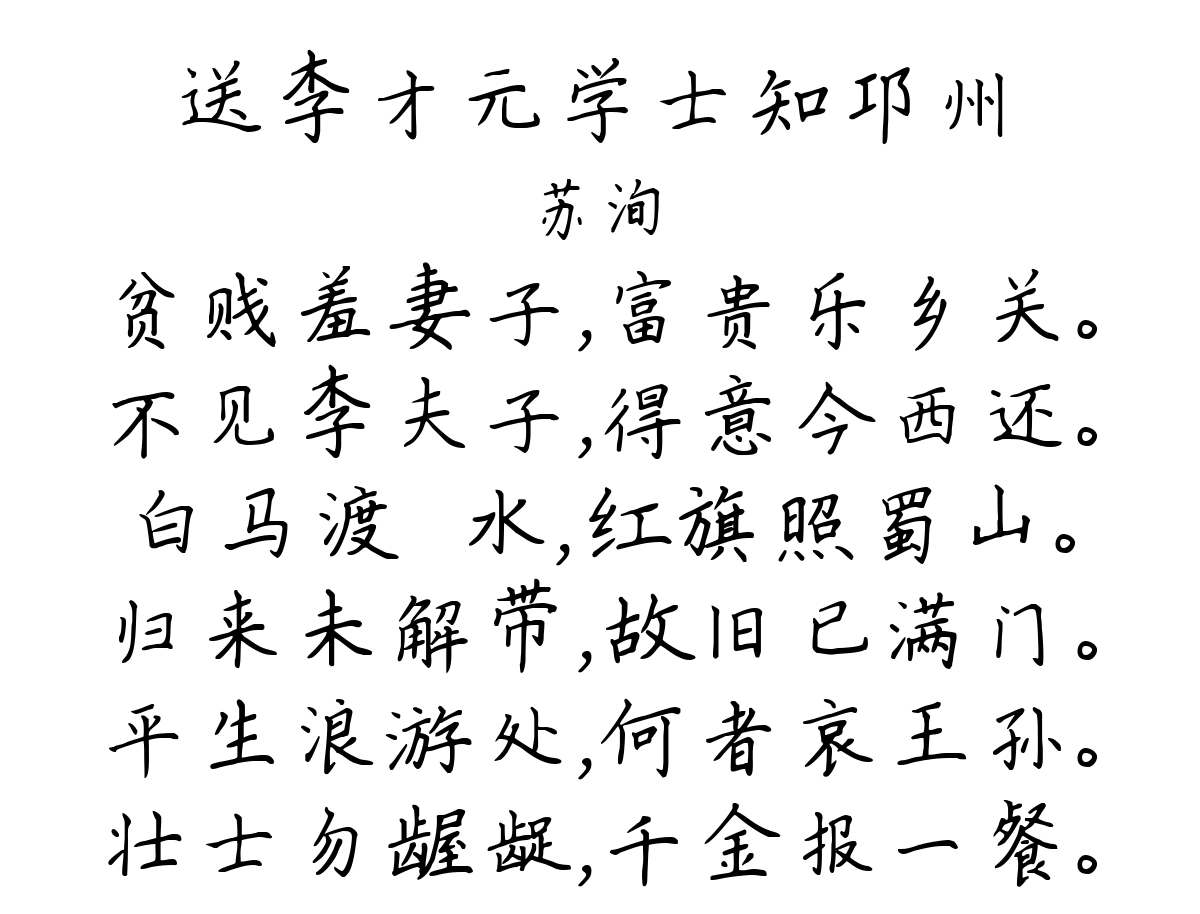 送李才元学士知邛州
苏洵
贫贱羞妻子,富贵乐乡关。
不见李夫子,得意今西还。
白马渡 水,红旗照蜀山。
归来未解带,故旧已满门。
平生浪游处,何者哀王孙。
壮士勿龌龊,千金报一餐。